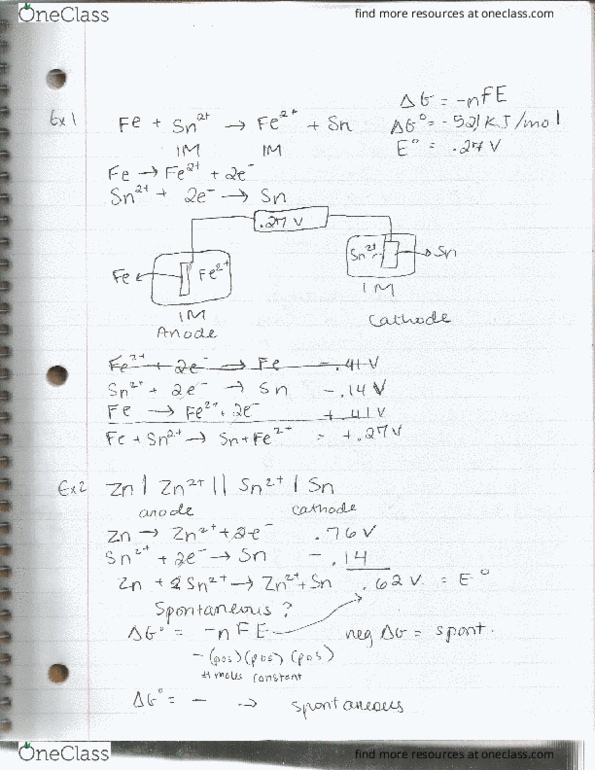 OneClass
find more resources at oneclass.com
Ex 1
Fe + Sn²⁺ → Fe²⁺ + Sn
1M 1M
ΔG = -nFE
ΔG° = -52.1 kJ/mol
E° = .27 V
Fe → Fe²⁺ + 2e⁻
Sn²⁺ + 2e⁻ → Sn
.27 V
Fe Fe²⁺
Sn²⁺ → Sn
1M
1M
Anode
Cathode
Fe²⁺ + 2e⁻ → Fe -.41 V
Sn²⁺ + 2e⁻ → Sn -.14 V
Fe → Fe²⁺ + 2e⁻ +.41 V
Fe + Sn²⁺ → Sn + Fe²⁺ = +.27 V
Ex 2 Zn | Zn²⁺ || Sn²⁺ | Sn
anode cathode
Zn → Zn²⁺ + 2e⁻ .76 V
Sn²⁺ + 2e⁻ → Sn -.14
Zn + Sn²⁺ → Zn²⁺ + Sn .62 V = E°
Spontaneous?
ΔG° = -nFE neg ΔG = spont.
-(pos)(pos)(pos)
# moles constant
ΔG° = - → spontaneous
OneClass
find more resources at oneclass.com